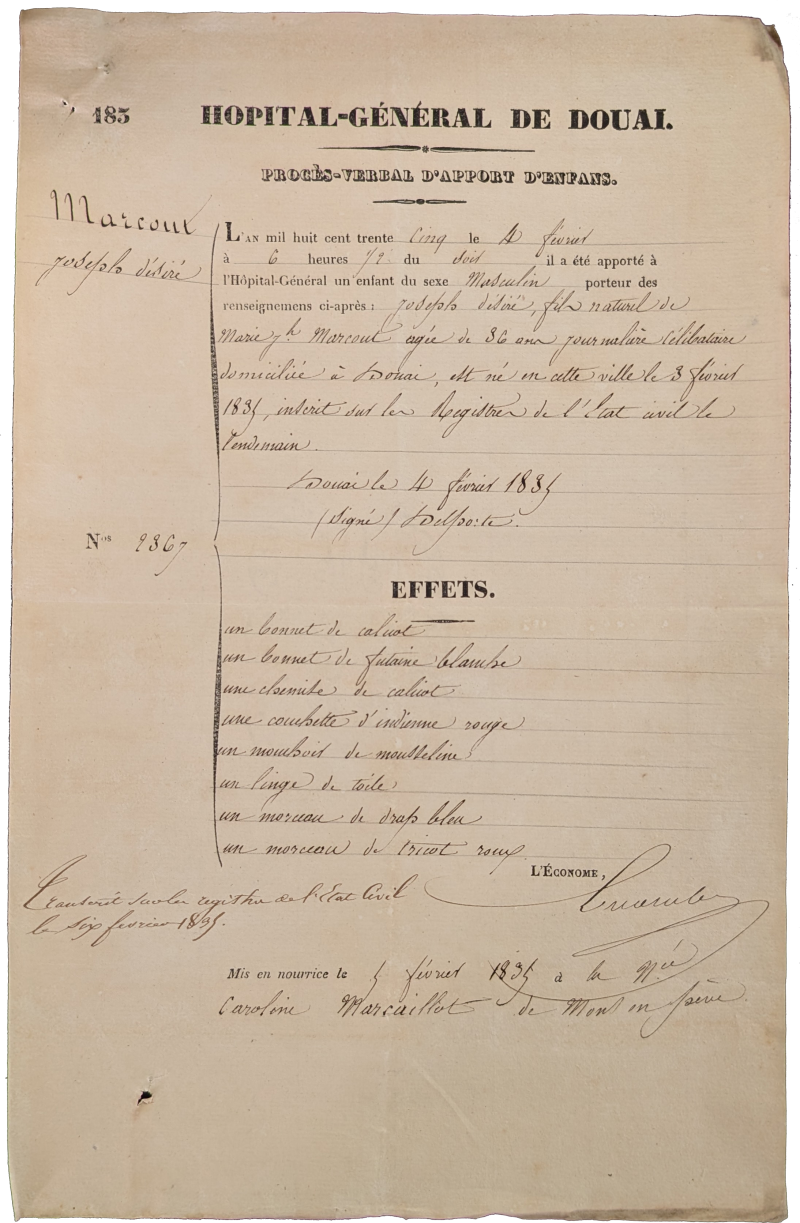 183
HOPITAL-GÉNÉRAL DE DOUAI.
PROCÈS-VERBAL D'APPORT D'ENFANS.
Marcout
joseph désiré
L'AN mil huit cent trente Cinq le 4 février
à 6 heures 1/2 du soir il a été apporté à
l'Hôpital-Général un enfant du sexe Masculin porteur des
renseignemens ci-après : joseph désiré, fils naturel de
Marie jh Marcout agée de 36 ans journalière Célibataire
domiciliée à Douai, est né en cette ville le 3 février
1835, inscrit sur les Registres de l'État civil le
lendemain.
Douai le 4 février 1835
(signé) Delporte.
Nos 2367
EFFETS.
un bonnet de calicot
un bonnet de futaine blanche
une chemise de calicot
une couchette d'indienne rouge
un mouchoir de mousseline
un linge de toile
un morceau de drap bleu
un morceau de tricot roux.
L'ÉCONOME,
Transcrit sur les registres de l'Etat Civil
le six février 1835.
Mis en nourrice le 5 février 1835 à la Née
Caroline Marcaillot de Mons en pévèle